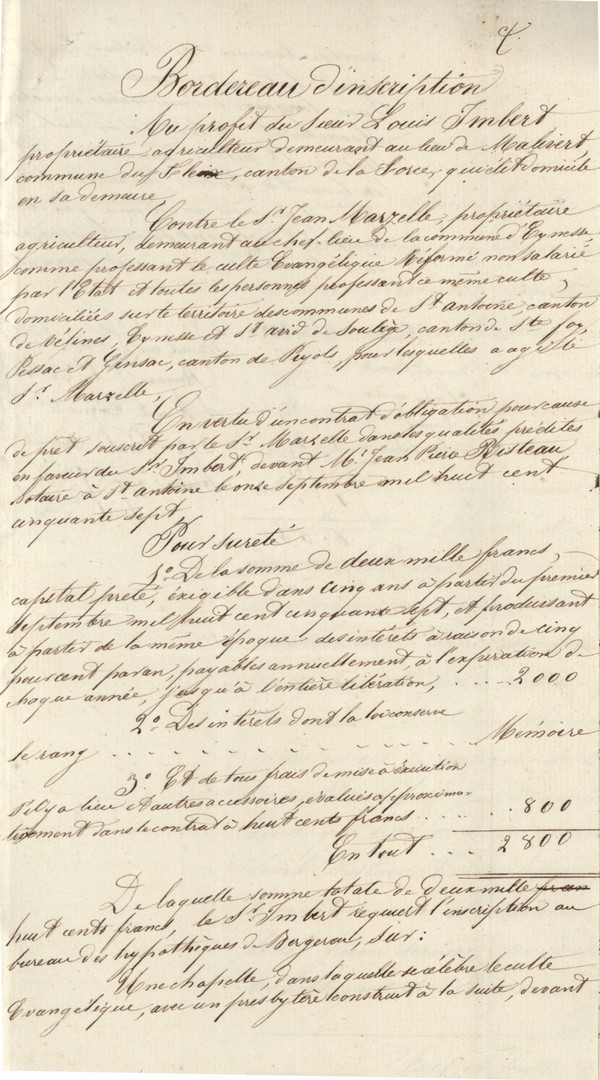 Bordereau d'inscription
Au profit du sieur Louis Imbert
propriétaire agriculteur demeurant au lieu de Malivert
commune du Fleix, canton de la Force, qui élit domicile
en sa demeure,
Contre le Sr Jean Marzelle, propriétaire
agriculteur, demeurant au chef-lieu de la commune d'Eynesse
comme professant le culte Evangélique Réformé non salarié
par l'Etat et toutes les personnes professant ce même culte,
domiciliées sur le territoire des communes de St antoine, canton
de Vélines, Eynesse et St avid de Soulège, canton de Ste foy,
Pessac et Gensac, canton de Pujols, pour lesquelles a agi le
Sr Marzelle,
En vertu d'un contrat d'obligation pour cause
de prêt souscrit par le Sr Marzelle dans les qualités prédites
en faveur du Sr Imbert, devant Me Jean Pierre Risteau,
notaire à St antoine le onze septembre mil huit cent
cinquante sept
Pour sureté
1o De la somme de deux mille francs,
capital prêté, exigible dans cinq ans à partir du premier
septembre mil huit cent cinquante sept, et produisant
à partir de la même époque des intérêts à raison de cinq
pour cent par an, payables annuellement, à l'expiration de
chaque année, jusqu'à l'entière libération, .... 2000
2o Des intérêts dont la loi conserve
le rang .......... Mémoire
3o Et de tous frais de mise à exécution
s'il y a lieu et autres accessoires, évalués approxima-
tivement dans le contrat à huit cents francs ..... 800
En tout ... 2800
De laquelle somme totale de deux mille fran
huit cents francs, le Sr Imbert requert l'inscription au
bureau des hypothèques de Bergerac, sur:
Une chapelle, dans laquelle se célèbre le culte
Evangélique, avec un presbytère construit à la suite, devant